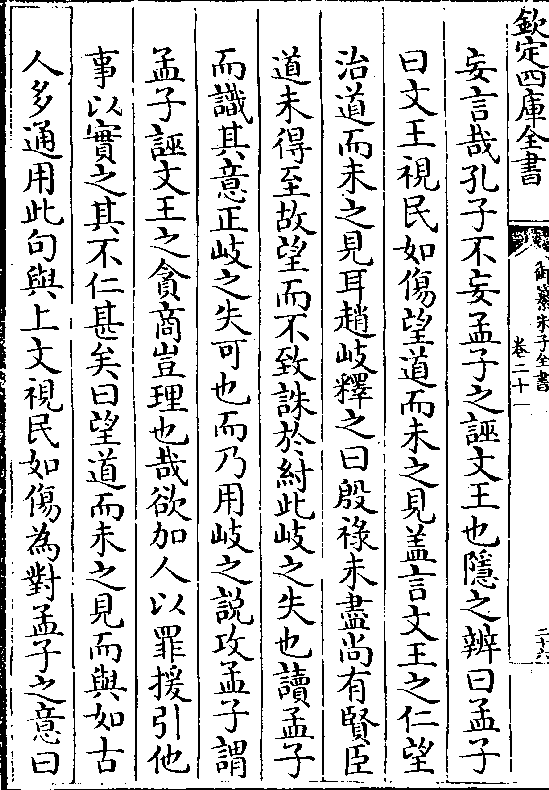 欽定四庫全書
御纂朱子全書
卷二十一
二十六
妄言哉孔子不妄孟子之誣文王也隱之辨曰孟子
曰文王視民如傷望道而未之見盖言文王之仁望
治道而未之見耳趙岐釋之曰殷祿未盡尚有賢臣
道未得至故望而不致誅於紂此岐之失也讀孟子
而識其意正岐之失可也而乃用岐之説攻孟子謂
孟子誣文王之貪商豈理也哉欲加人以罪援引他
事以實之其不仁甚矣曰望道而未之見而與如古
人多通用此句與上文視民如傷為對孟子之意曰